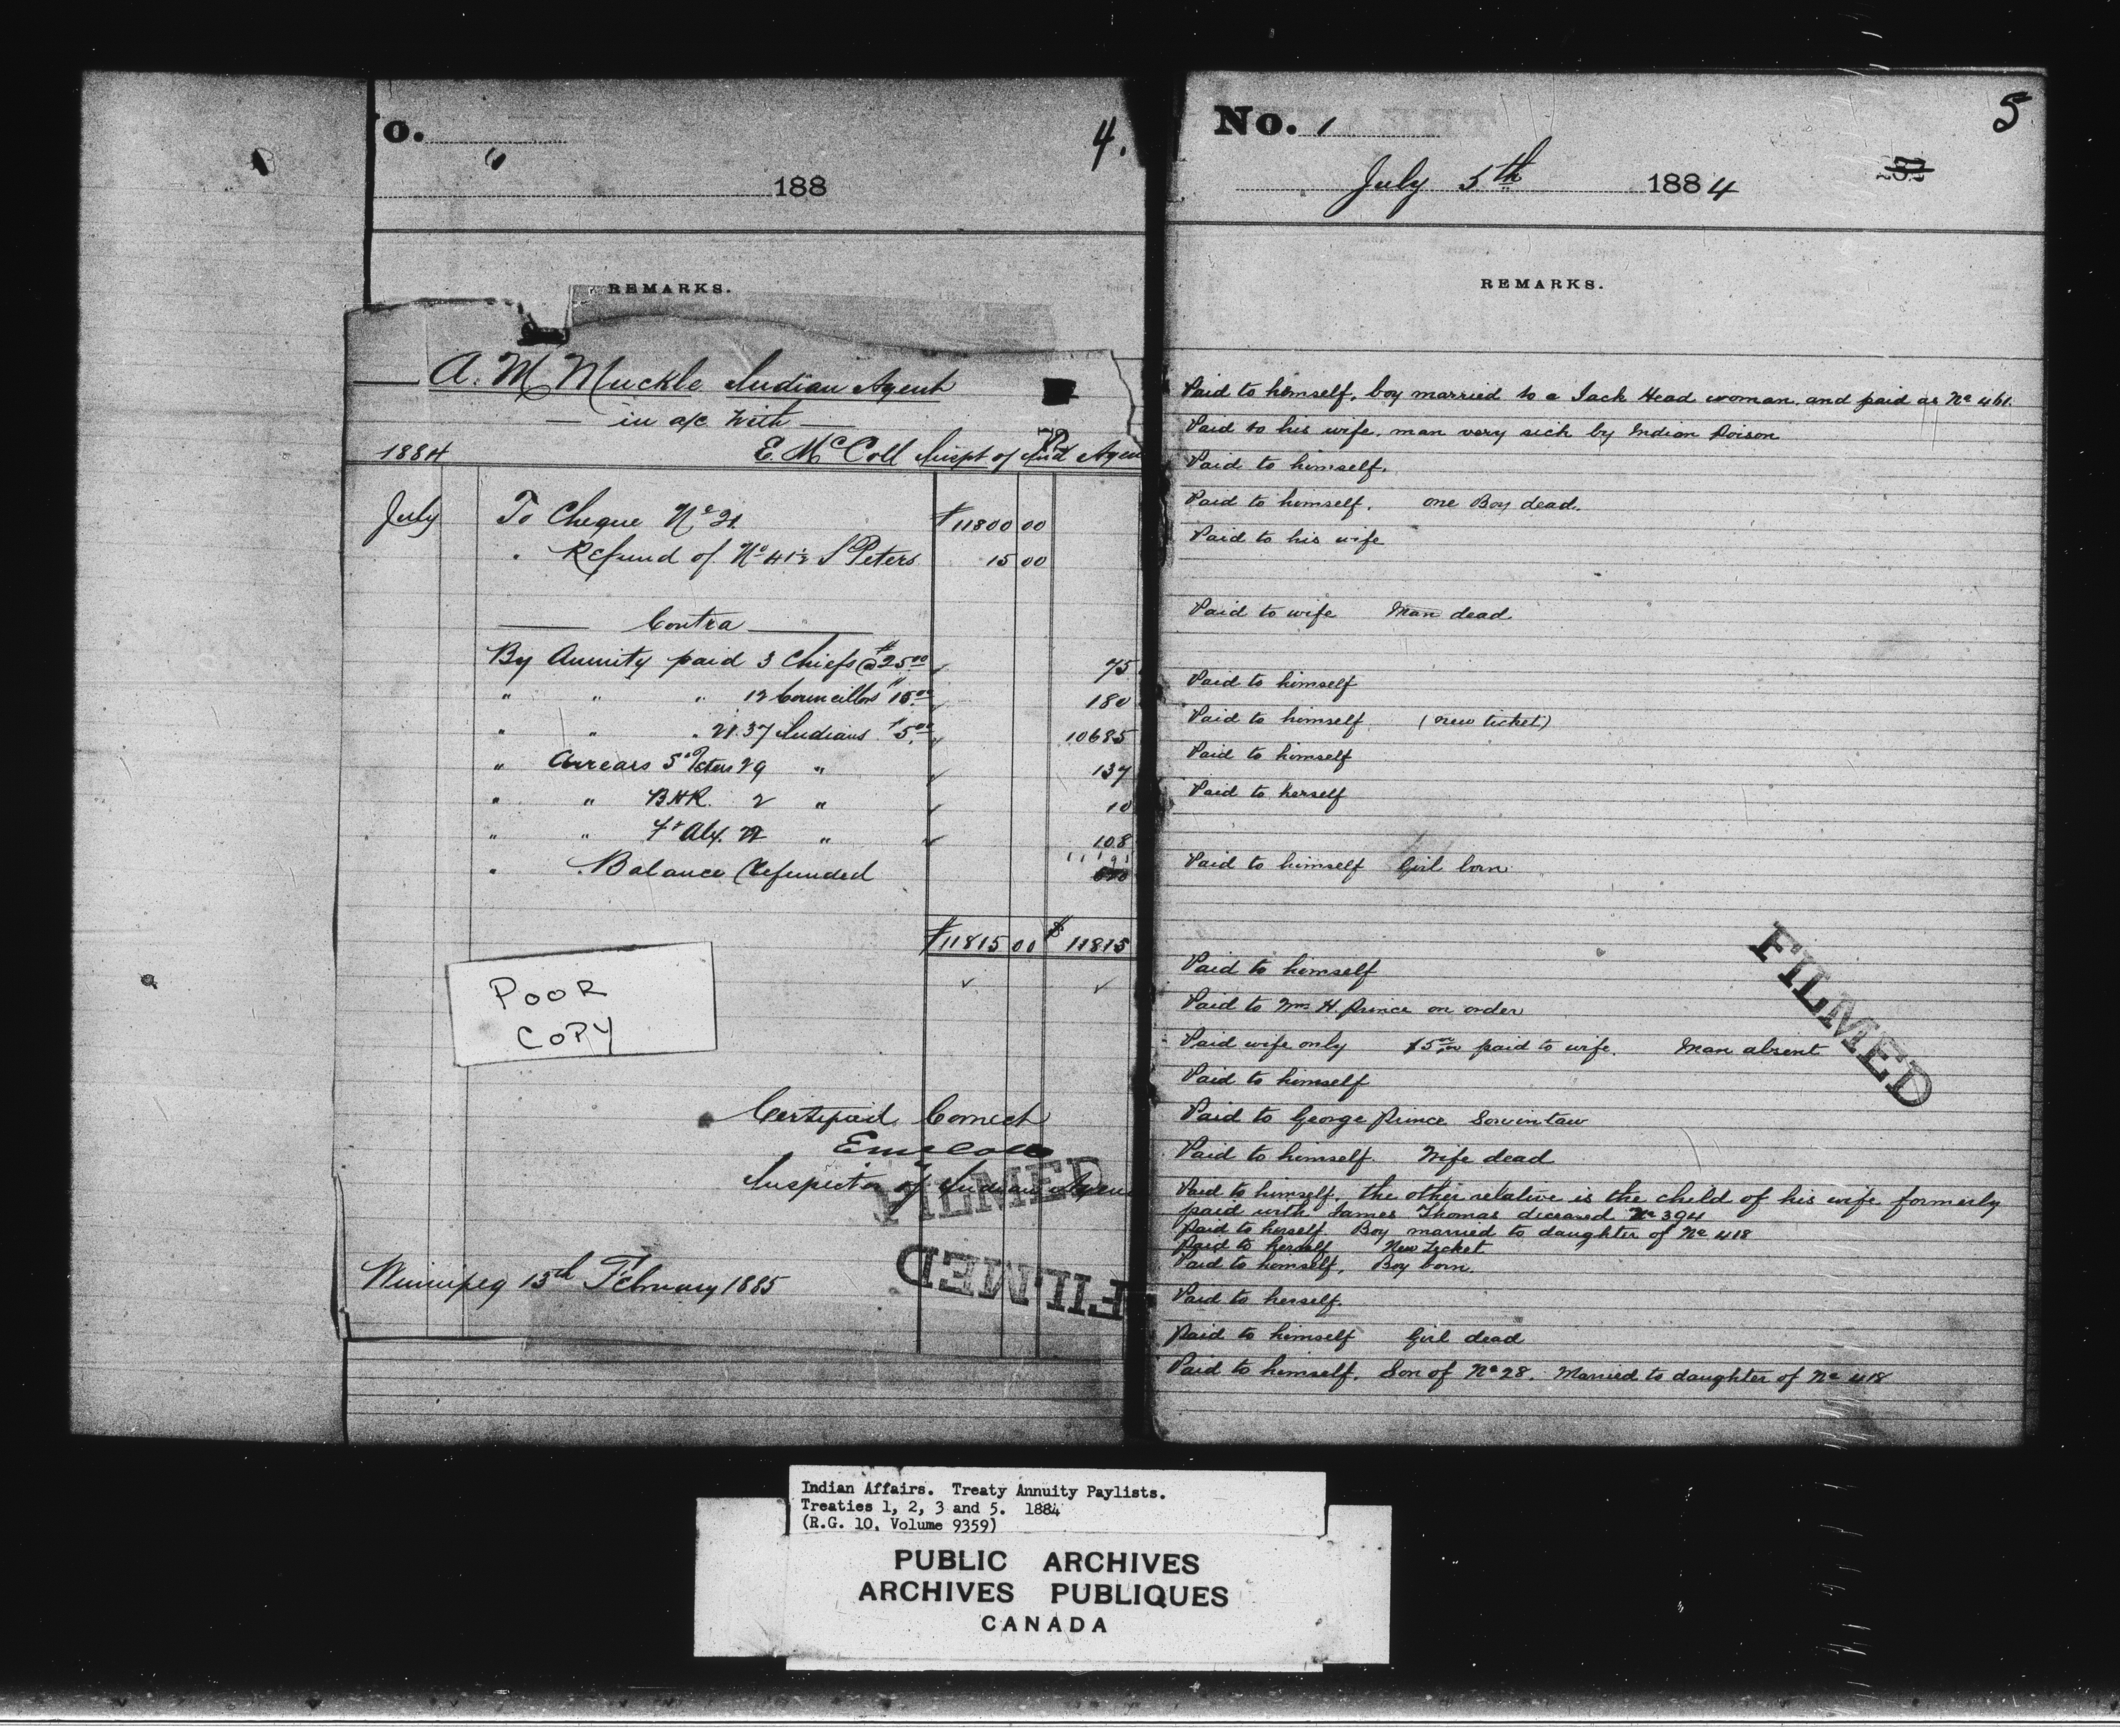 o.
4.
188
REMARKS.
A. M Muckle Indian Agent
in a/c with
1884 E. McColl Inspt of Ind Agen
July To Cheque No 21 $11800 00
" Refund of No 412 S Peters 15 00
Contra
By Annuity paid 3 Chiefs @ $25.00 75
" " " 12 Councillors $15.00 180
" " " 2137 Indians $5.00 10685
" Arrears St Peters 29 " 137
" " BHR. 2 " 10
" " Ft Alx. 22 " 108
" Balance Refunded
$11815 00 $ 11815
POOR
COPY
Certified Correct
E McColl
Inspector of Indian Agen
FILMED
FILMED
Winnipeg 13th February 1885
No. 1
5
July 5th 1884
REMARKS.
Paid to himself, boy married to a Jack Head woman and paid as No 461.
Paid to his wife. man very sick by Indian Poison
Paid to himself.
Paid to himself. one Boy dead.
Paid to his wife
Paid to wife Man dead
Paid to himself
Paid to himself (new ticket)
Paid to himself
Paid to herself
Paid to himself Girl born
Paid to himself
Paid to Mrs H. Prince on order
Paid wife only $5.00 paid to wife. Man absent
FILMED
Paid to himself
Paid to George Prince Son in law
Paid to himself Wife dead
Paid to himself. the other relative is the child of his wife formerly
paid with James Thomas deceased No 394
Paid to herself Boy married to daughter of No 418
Paid to herself New Ticket
Paid to himself. Boy born.
Paid to herself.
Paid to himself Girl dead
Paid to himself. Son of No 28. Married to daughter of No 418
Indian Affairs. Treaty Annuity Paylists.
Treaties 1, 2, 3 and 5. 1884
(R.G. 10, Volume 9359)
PUBLIC ARCHIVES
ARCHIVES PUBLIQUES
CANADA